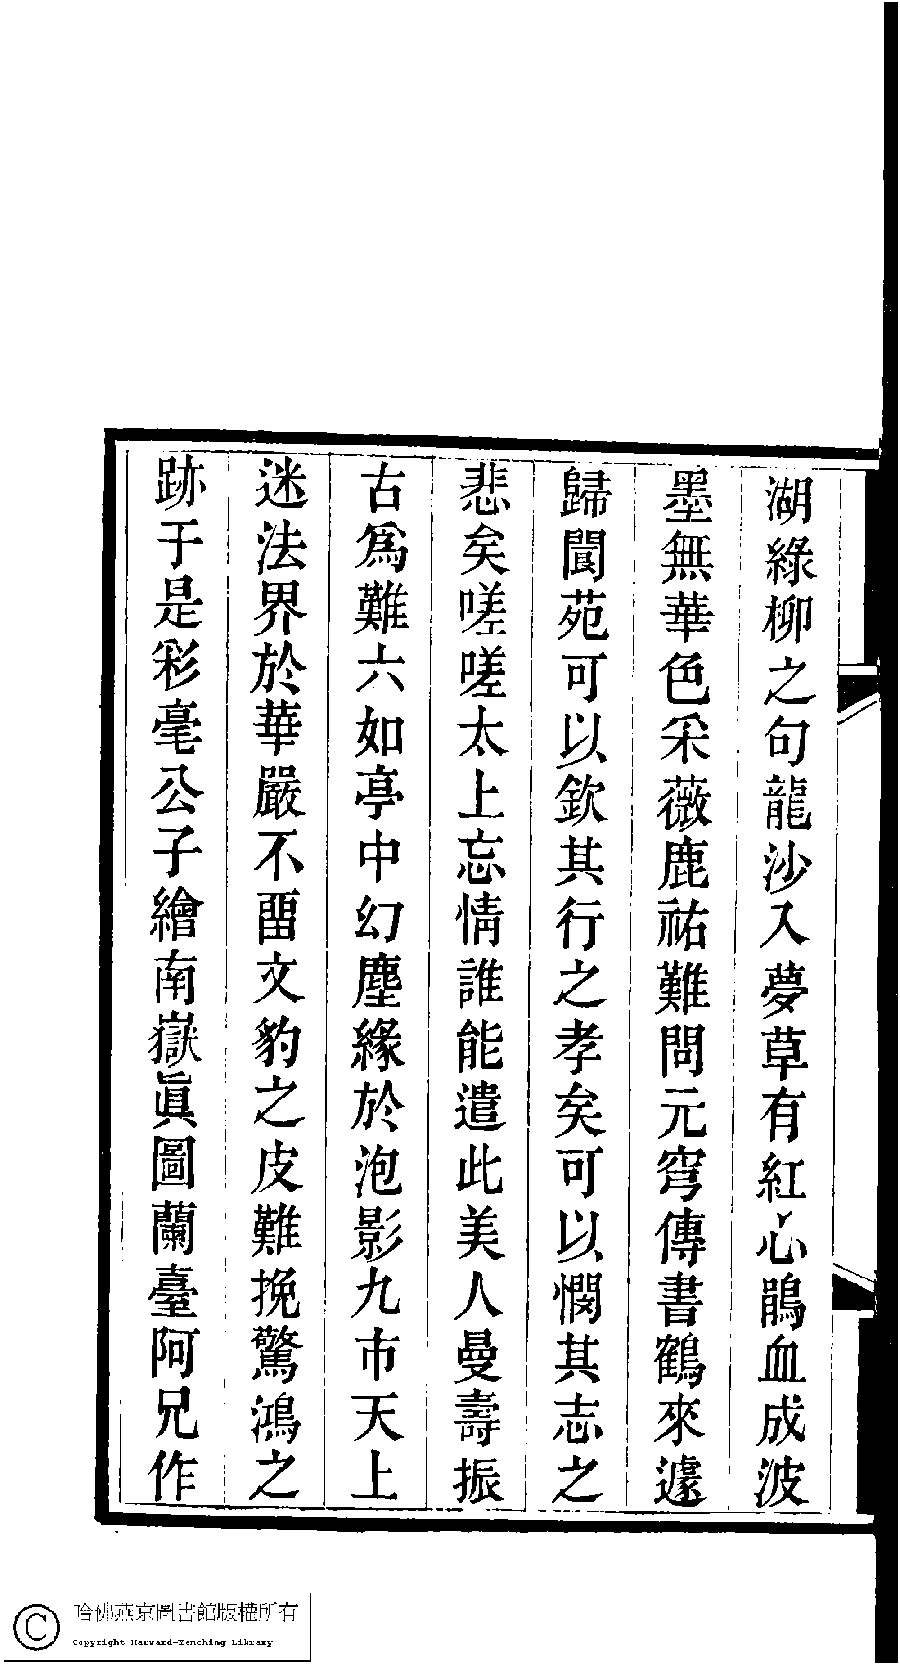 湖綠柳之句龍沙入夢草有紅心鵑血成波
墨無華色采薇鹿祐難問元穹傳書鶴來遽
歸閬苑可以欽其行之孝矣可以憫其志之
悲矣嗟嗟太上忘情誰能遣此美人曼壽振
古爲難六如亭中幻塵緣於泡影九市天上
迷法界於華嚴不畱文豹之皮難挽驚鴻之
跡于是彩毫公子繪南嶽眞圖蘭臺阿兄作
哈佛燕京圖書館版權所有
Copyright Harvard-Yenching Library